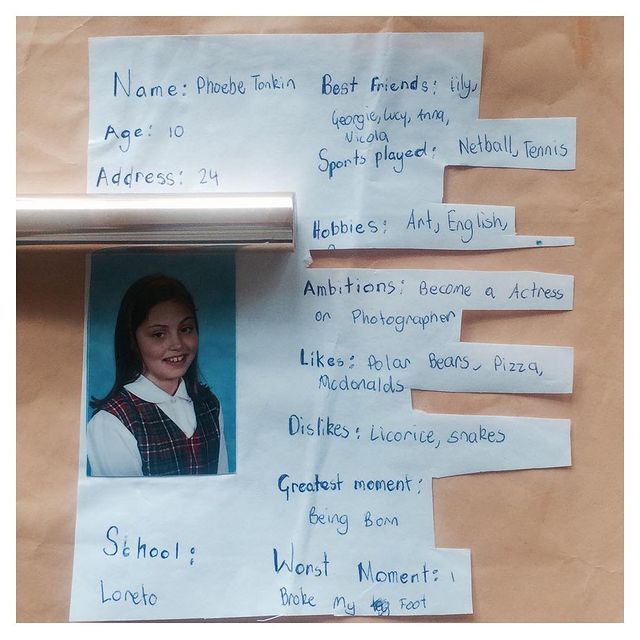 Name: Phoebe Tonkin
Age: 10
Address: 24
School:
Loreto
Best friends: Lily,
Georgie, Lucy, Anna,
Nicola
Sports played: Netball, Tennis
Hobbies: Art, English,
Ambitions: Become a Actress
or Photographer
Likes: Polar Bears, Pizza,
Mcdonalds
Dislikes: Licorice, snakes
Greatest moment:
Being Born
Worst Moment: I
Broke My Foot